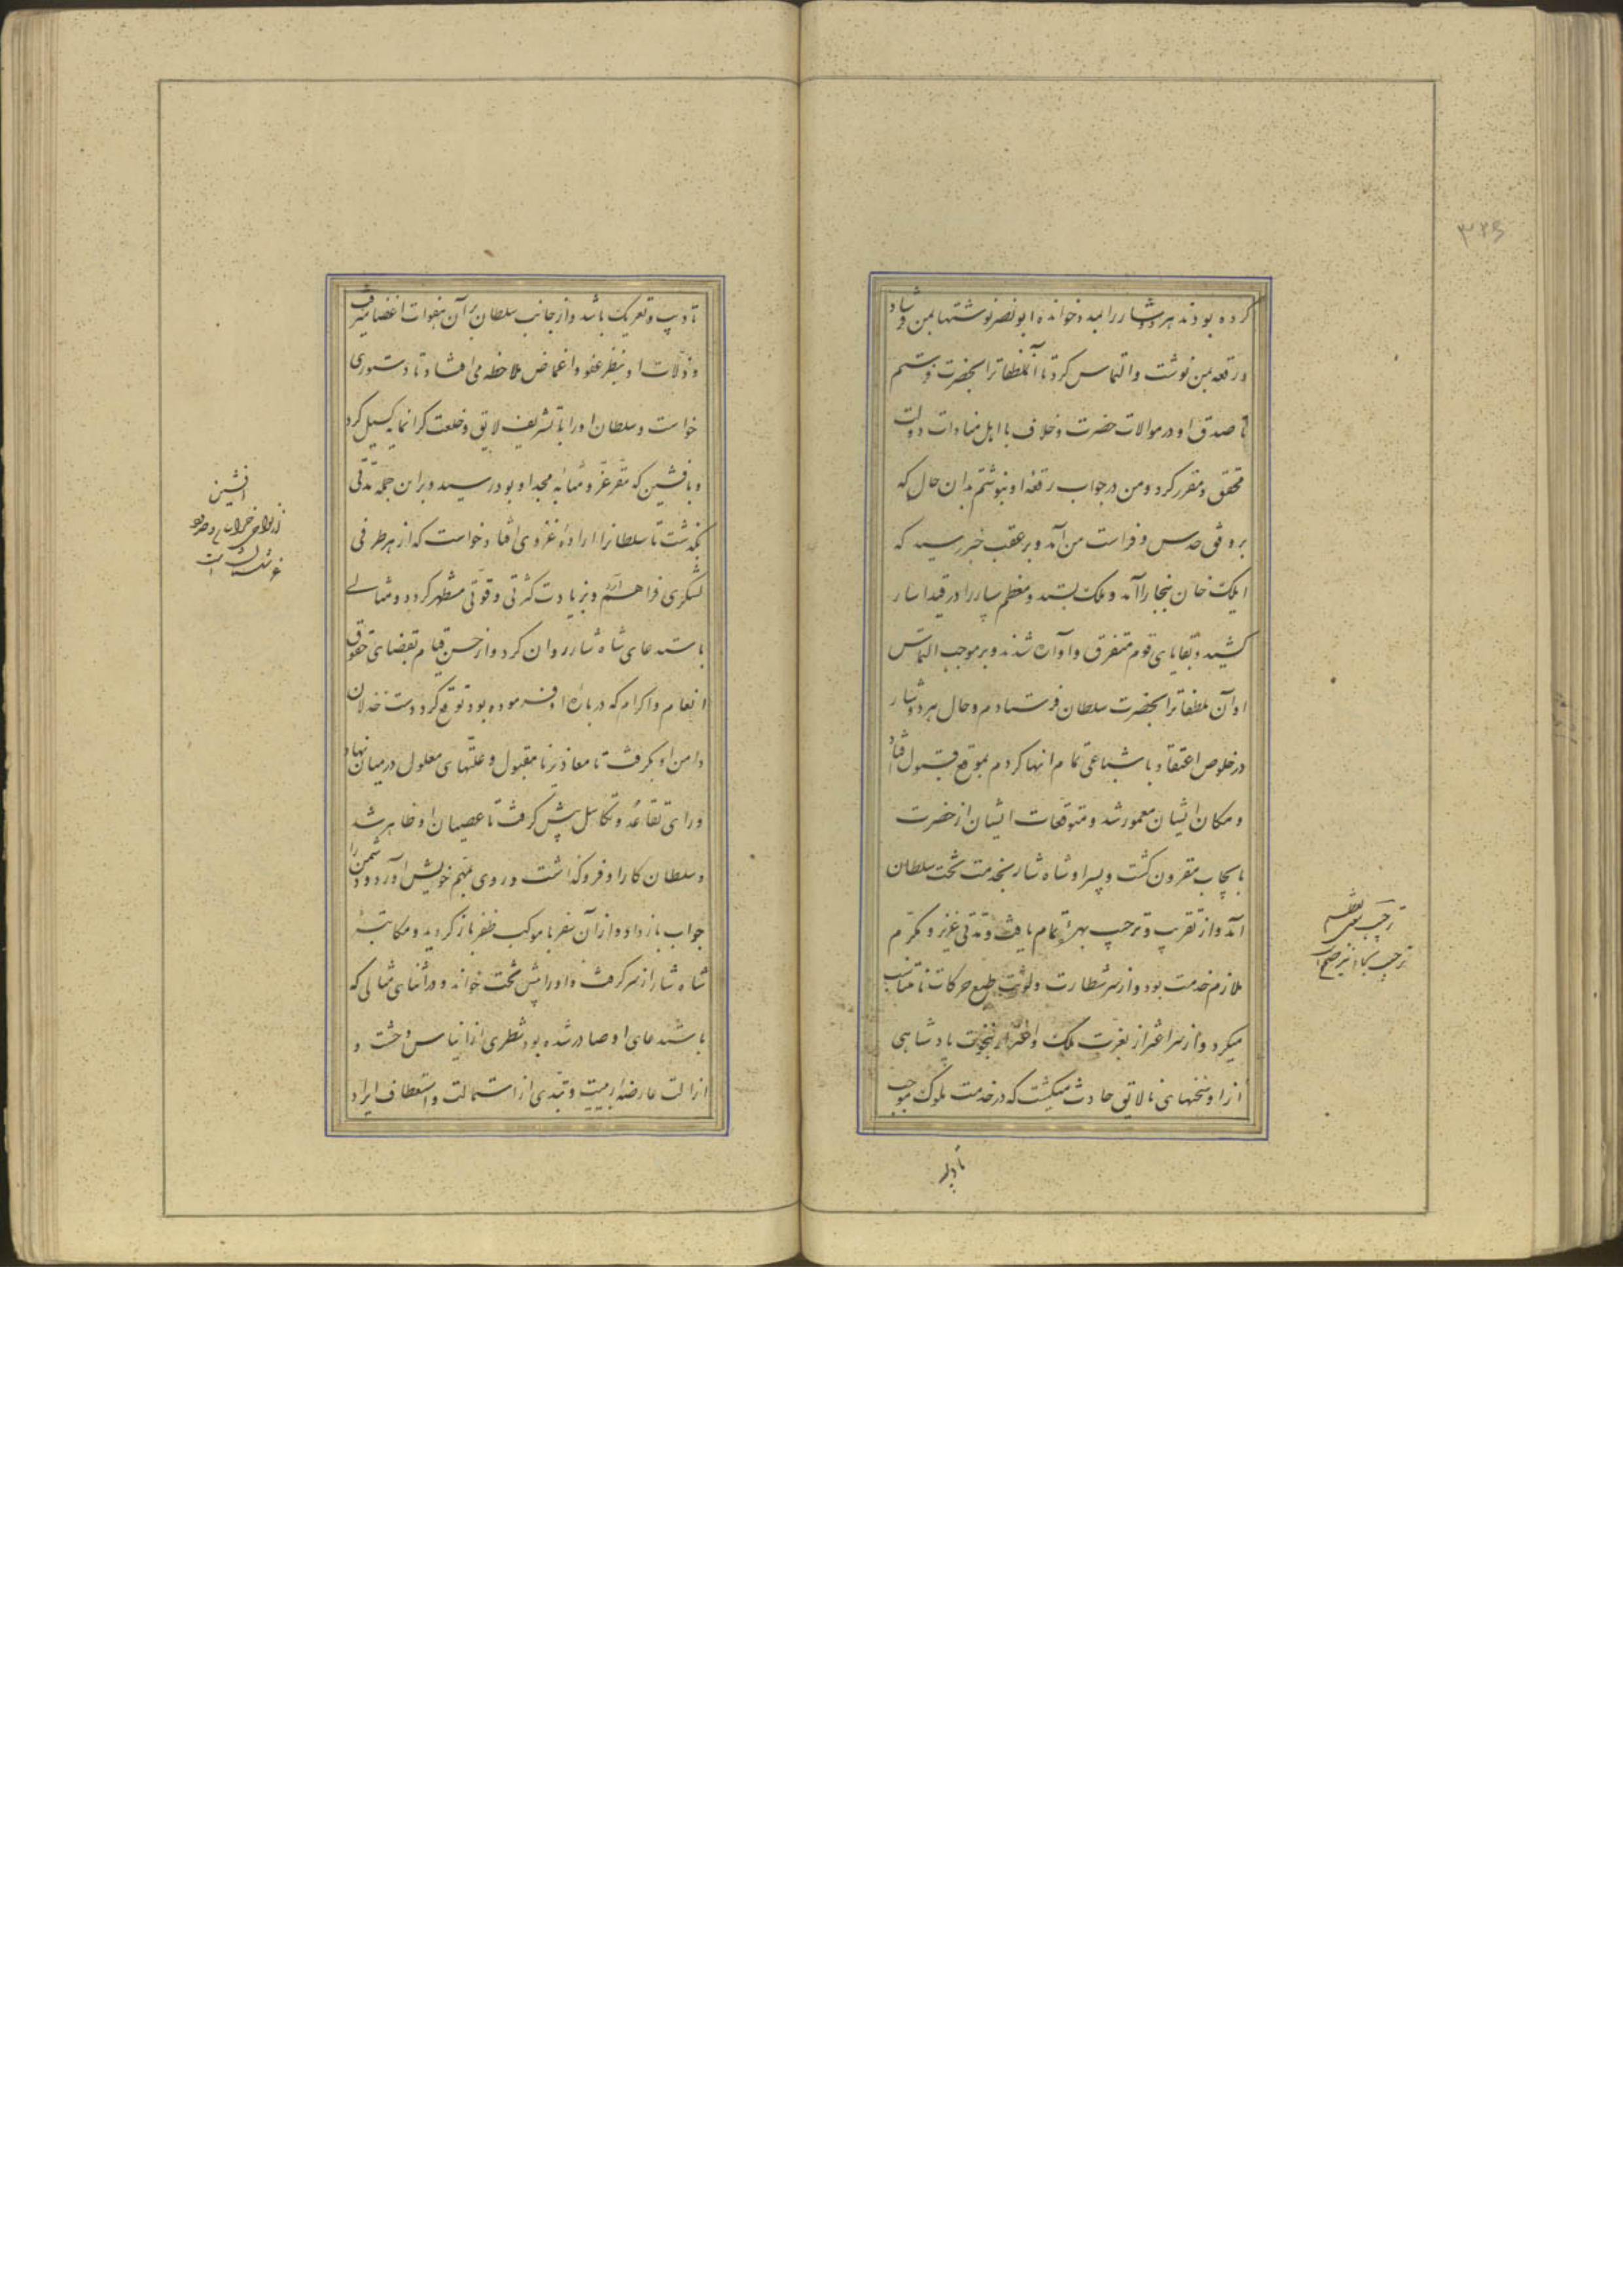 ۳۲۶
کرده بودند هر دو شار را بمدد خوانده ابو نصر نوشتها بمن فرستاد
و رقعه بمن نوشت و التماس کرد تا آن ملطفاترا بحضرت فرستم
تا صدق او در موالات حضرت و خلاف با اهل منادات دولت
محقق و مقرر کرد و من در جواب رقعه او بنوشتم بدان حال که
بر وفق حدس و فراست من آمد و بر عقب خبر رسید که
ایلک خان ببخارا آمد و ملک بستد و معظم سپاه را در قید اسار
کشید و بقایای قوم متفرق و آواره شدند و بر موجب التماس
او آن ملطفاترا بحضرت سلطان فرستادم و حال هر دو شار
در خلوص اعتقاد باشباعی تمام انها کردم بموقع قبول افتاد
و مکان ایشان معمور شد و متوقعات ایشان از حضرت
بایجاب مقرون گشت و پسر او شاه شار بخدمت تخت سلطان
آمد و از تقریب و ترحیب بهره تمام یافت و مدتی عزیز و مکرم
ملازم خدمت بود و از سر شطارت و لوثت طبع حرکات نامتناسب
میکرد و از سر اغترار بعزت ملک و اغترار بنخوت پادشاهی
از او سخنهای نالایق حادث میگشت که در خدمت ملوک موجب
ترحیب تعظیم
تأدیب
تأدیب و تعریک باشد و از جانب سلطان بر آن هفوات اغضا میرفت
و زلات او بنظر عفو و اغماض ملاحظه می افتاد تا دستوری
خواست و سلطان او را با تشریف لایق و خلعت گرانمایه گسیل کرد
و بافشین که مقر عز و مثابه مجد او بود رسید و بر این جمله مدتی
بگذشت تا سلطانرا اراده غزوی افتاد خواست که از هر طرفی
لشکری فراهم آرد و بزیادت کثرتی و قوتی مستظهر گردد و مثالی
باستدعای شاه شار روان کرد و از حسن قیام بقضای حقوق
انعام و اکرام که درباره او فرموده بود توقع کرد دست خذلان
دامن او بگرفت تا معاذیر نامقبول و علتهای معلول در میان نهاد
و رای تقاعد و تکاسل پیش گرفت تا عصیان او ظاهر شد
و سلطان کار او فروگذاشت و روی بمهم خویش آورد و دشمن را
جواب باز داد و از آن سفر با موکب ظفر باز گردید و مکاتبه
شاه شار از سر گرفت و او را پیش تخت خواند و در اثنای مثالی که
باستدعای او صادر شده بود شطری از ایناس وحشت و
ازالت عارضه ریبت و نبذی از استمالت و استعطاف ایراد
افشین